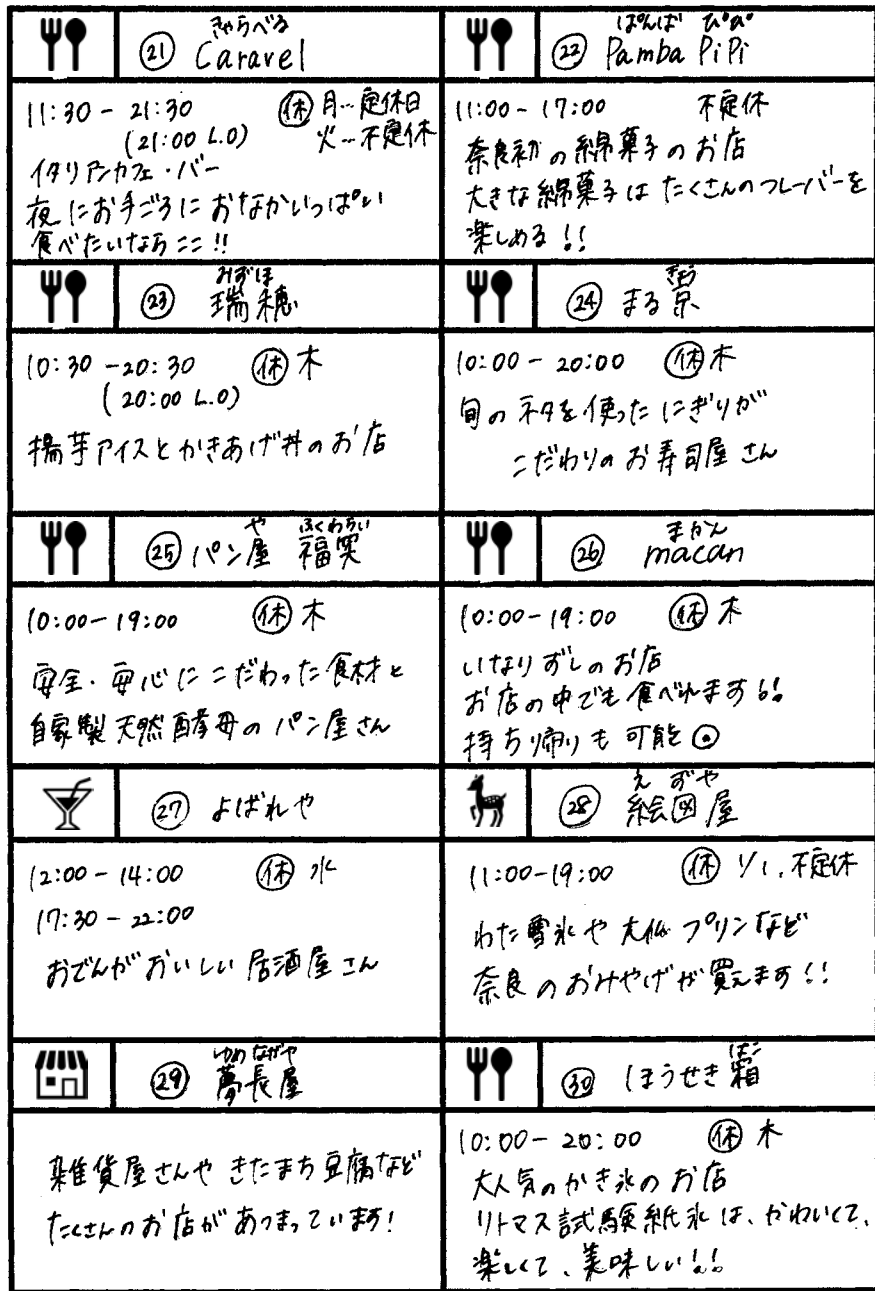 きゃらべる
㉑ Caravel
11:30 - 21:30 ㊡ 月…定休日
(21:00 L.O) 火…不定休
イタリアンカフェ・バー
夜にお手ごろにおなかいっぱい
食べたいならここ!!
ぱんぱ ぴぴ
㉒ Pamba PiPi
11:00 - 17:00 不定休
奈良初の綿菓子のお店
大きな綿菓子はたくさんのフレーバーを
楽しめる!!
みずほ
㉓ 瑞穂
10:30 - 20:30 ㊡ 木
(20:00 L.O)
揚芋アイスとかきあげ丼のお店
きょう
㉔ まる京
10:00 - 20:00 ㊡ 木
旬のネタを使ったにぎりが
こだわりのお寿司屋さん
や ふくわらい
㉕ パン屋 福笑
10:00 - 19:00 ㊡ 木
安全・安心にこだわった食材と
自家製天然酵母のパン屋さん
まかん
㉖ macan
10:00 - 19:00 ㊡ 木
いなりずしのお店
お店の中でも食べれます!!
持ち帰りも可能◎
㉗ よばれや
12:00 - 14:00 ㊡ 水
17:30 - 22:00
おでんがおいしい居酒屋さん
えずや
㉘ 絵図屋
11:00 - 19:00 ㊡ 1/1、不定休
わた雪氷や大仏プリンなど
奈良のおみやげが買えます!!
ゆめながや
㉙ 夢長屋
雑貨屋さんやきたまち豆腐など
たくさんのお店があつまっています!
ばこ
㉚ ほうせき箱
10:00 - 20:00 ㊡ 木
大人気のかき氷のお店
リトマス試験紙氷は、かわいくて、
楽しくて、美味しい!!